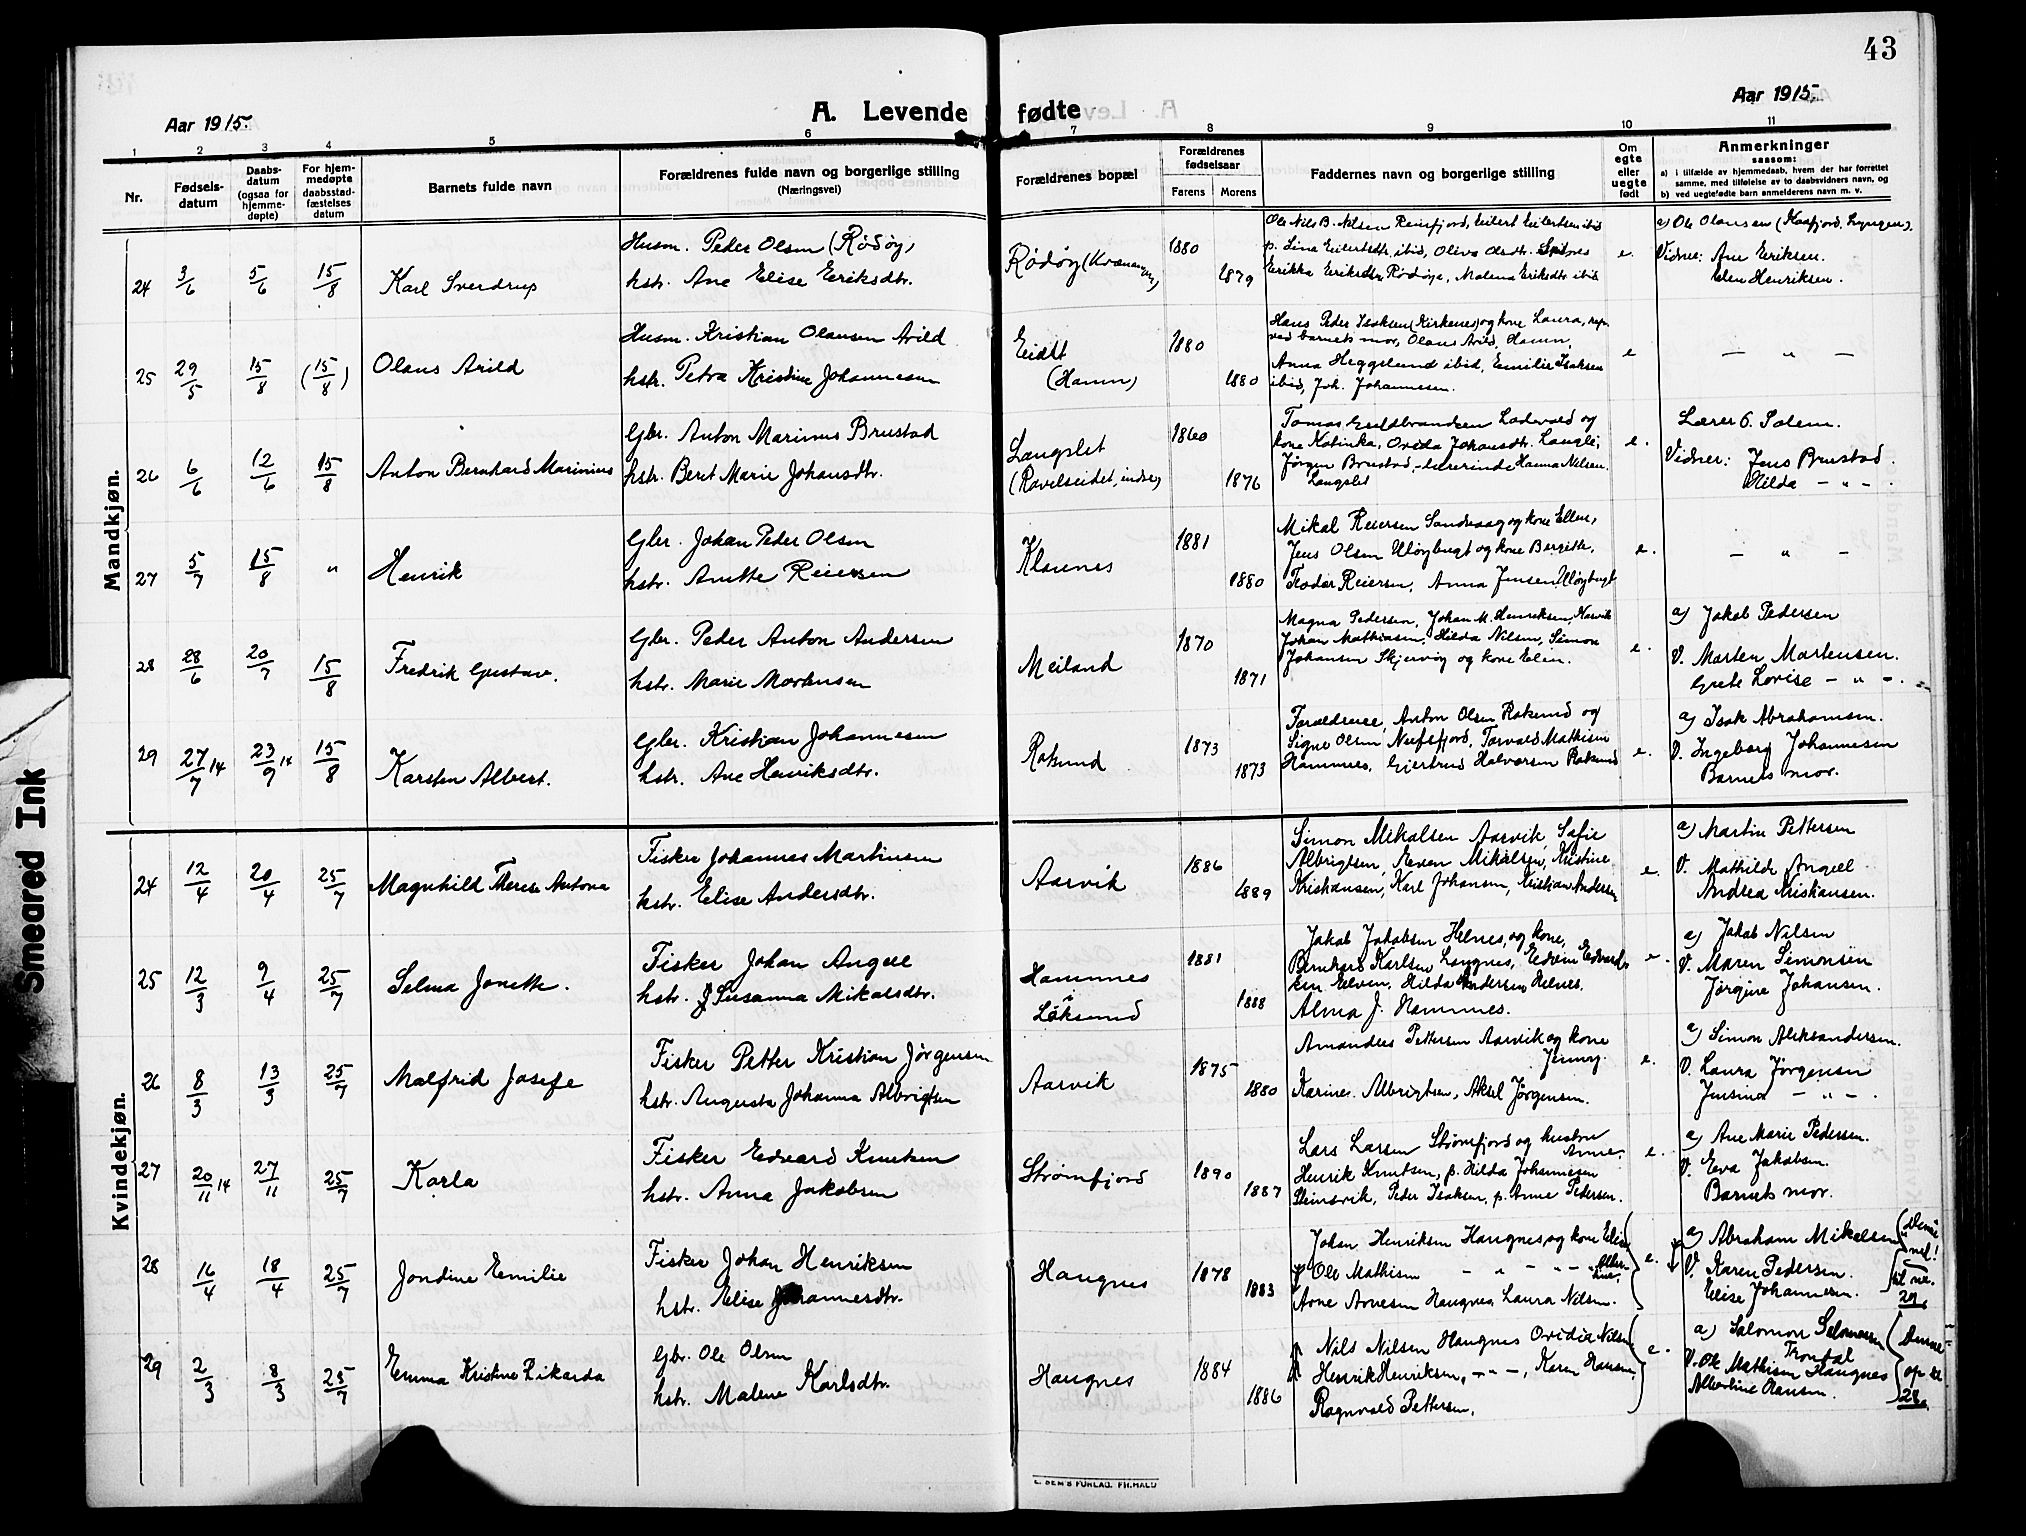 43
Aar 1915.
A. Levende fødte
Aar 1915.
1 2 3 4 5 6 7 8 9 10 11
Nr.
Fødsels-
datum
Daabs-
datum
(ogsaa for
hjemme-
døpte)
For hjem-
medøpte
daabsstad-
fæstelses
datum
Barnets fulde navn
Forældrenes fulde navn og borgerlige stilling
(Næringsvei)
Forældrenes bopæl
Forældrenes
fødselsaar
Farens Morens
Faddernes navn og borgerlige stilling
Om
egte
eller
uegte
født
Anmerkninger
saasom:
a) i tilfælde av hjemmedaab, hvem der har forrettet
samme, med tilføielse av to daabsvidners navn, og
b) ved uegtefødte barn anmelderens navn m. v.
Mandkjøn.
24 3/6 5/6 15/8 Karl Sverdrup
Husm. Peder Olsen (Rødøy)
hstr. Ane Elise Eriksdtr.
Rødøy (Kvænangen)
1880
1879
Ole Nils B. Nilsen Reinfjord, Eilert Eilertsen ibid
p. Lina Eilertsdtr ibid, Oliva Olsdtr. Spilnes
Erikka Eriksdtr Rødøy, Malena Eriksdtr ibid
e.
a) Ole Olaussen (Kaafjord, Lyngen).
Vidner: Ane Eriksen.
Elen Henriksen.
25 29/5 15/8 (15/8) Olaus Arild
Husm. Kristian Olausen Arild
hstr. Petra Kristine Johannesen
Eidet
(Hamn)
1880
1880
Hans Peder Isaksen (Kirkenes) og kone Laura, repr.
ved barnets mor, Olaus Arild, Hamn,
Anna Heggelund ibid, Emilie Isaksen
ibid, Joh. Johannesen.
e
— „ —
26 6/6 12/6 15/8 Anton Bernhard Marinius
Gbr. Anton Marinius Brustad
hstr. Beret Marie Johansdtr.
Langslet
(Ravelseidet, indre)
1860
1876
Tomas Guldbrandsen Ladevold og
kone Katinka, Ovida Johansdtr. Langsle,
Jørgen Brustad, lærerinde Hanna Nilsen
Langslet
e.
Lærer O. Solem.
Vidner: Jens Brustad.
Hilda — „ — .
27 5/7 15/8 „ Henrik
Gbr. Johan Peder Olsen
hstr. Anette Reiersen
Klauenes
1881
1880
Mikal Reiersen Sandvaag og kone Ellen,
Jens Olsen Uløybugt og kone Bergitte,
Teodor Reiersen, Anna Jensen Uløybugt
e.
— „ —
28 28/6 20/7 15/8 Fredrik Gustav.
Gbr. Peder Anton Andersen
hstr. Marie Mortensen
Meiland
1870
1871
Magna Pedersen, Johan M. Henriksen, Norvik
Johan Mathiasen, Hilda Nilsen, Simon
Johansen Skjervøy og kone Elen.
e.
a) Jakob Pedersen
V. Morten Mortensen.
Grete Lovise — „ — .
29 27/7 14 23/9 14 15/8 Karsten Albert.
Gbr. Kristian Johannesen
hstr. Ane Henriksdtr.
Rotsund
1873
1873
Forældrene, Anton Olsen Rotsund og
Signe Olsen, Neufsfjord, Torvald Mathisen
Hamnnes, Gjertrud Halvorsen Rotsund
e.
a) Isak Abrahamsen.
V. Ingeborg Johannesen
Barnets mor.
Kvindekjøn.
24 12/4 20/4 25/7 Magnhild Therese Antona
Fisker Johannes Martinsen
hstr. Elise Andersdtr.
Aarvik
1886
1889
Simon Mikalsen Aarvik, Sofie
Albrigtsen, Edvin Mikalsen, Kristine
Kristiansen, Karl Johansen, Kristian Andersen
e.
a) Martin Pettersen
V. Mathilde Angell.
Andrea Kristiansen.
25 12/3 9/4 25/7 Selma Jonette.
Fisker Johan Angell
hstr. Susanna Mikalsdtr.
Hamnnes
i
Løksund
1881
1888
Jakob Jakobsen Helnes, og kone,
Bernhard Karlsen Langnes, Edvin Edvard-
sen Elven, Hilda Andersen Helnes.
Alma J. Hamnnes.
e.
a) Jakob Nilsen
V. Maren Simonsen
Jørgine Johansen.
26 8/3 13/3 25/7 Malfrid Josefe
Fisker Petter Kristian Jørgensen
hstr. Augusta Johanna Albrigtsen
Aarvik
1875
1880
Amandus Pettersen Aarvik og kone
Jenny.
Karine Albrigtsen, Aksel Jørgensen.
e.
a) Simon Aleksandersen.
V. Laura Jørgensen
Jensine — „ — .
27 20/11 14 27/11 25/7 Karla
Fisker Edvard Knutsen
hstr. Anna Jakobsen
Strømfjord
1890
1887
Lars Larsen Strømfjord og hustru
Anne
Henrik Knutsen, p. Hilda Johannesen
Steinsvik, Peder Isaksen, p. Anne Pedersen.
e.
a) Ane Marie Pedersen.
V. Eva Jakobsen.
Barnets mor.
28 16/4 18/4 25/7 Jondine Emilie
Fisker Johan Henriksen
hstr. Elise Johannesdtr.
Haugnes
1878
1883
Johan Henriksen Haugnes, og kone Elise
Ole Mathisen — „ — — „ Alber-
tine.
Arne Arnesen Haugnes, Laura Nilsen.
e.
a) Abraham Mikelsen
V. Karen Pedersen.
Elise Johannesen.
til nr.
29.
29 2/3 8/3 25/7 Emma Kristine Rikarda
Gbr. Ole Olsen
hstr. Malene Karlsdtr.
Haugnes
1884
1886
Nils Nilsen Haugnes Ovidia Nilsen
Henrik Henriksen, — „ — , Karen Hansen,
Ragnvald Pettersen.
e.
a) Salomon Salomonsen
Trondal
V. Ole Mathisen Haugnes
Albertine Hansen.
op til
28.
Smeared Ink